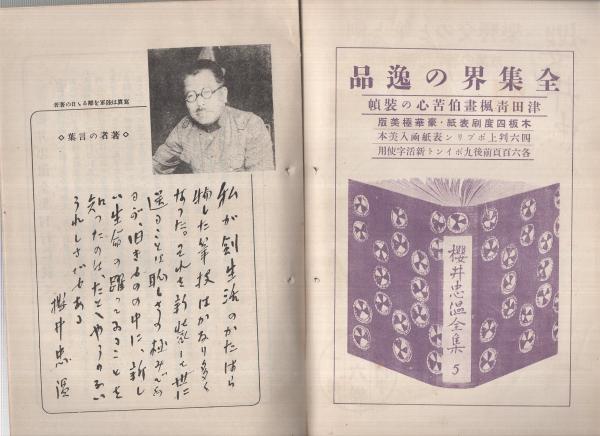 全集界の逸品
津田靑楓畫伯苦心の裝幀
木板四度刷表紙・豪華極美版
四六判上ポプリン表紙凾入美本
各六百頁前後九ポイント新活字使用
櫻井忠溫全集
5
寫眞は陸軍を辭る〻日の著者
◇著者の言葉◇
私が劍生活のかたはら
物した筆技はかなり多く
なつた。それを新裝して世に
送ることは恥しさの極みだ
が旧きものの中に新し
い生命の躍つてゐることを
知つたのは、たとへやうのない
うれしさでもある
櫻井忠溫